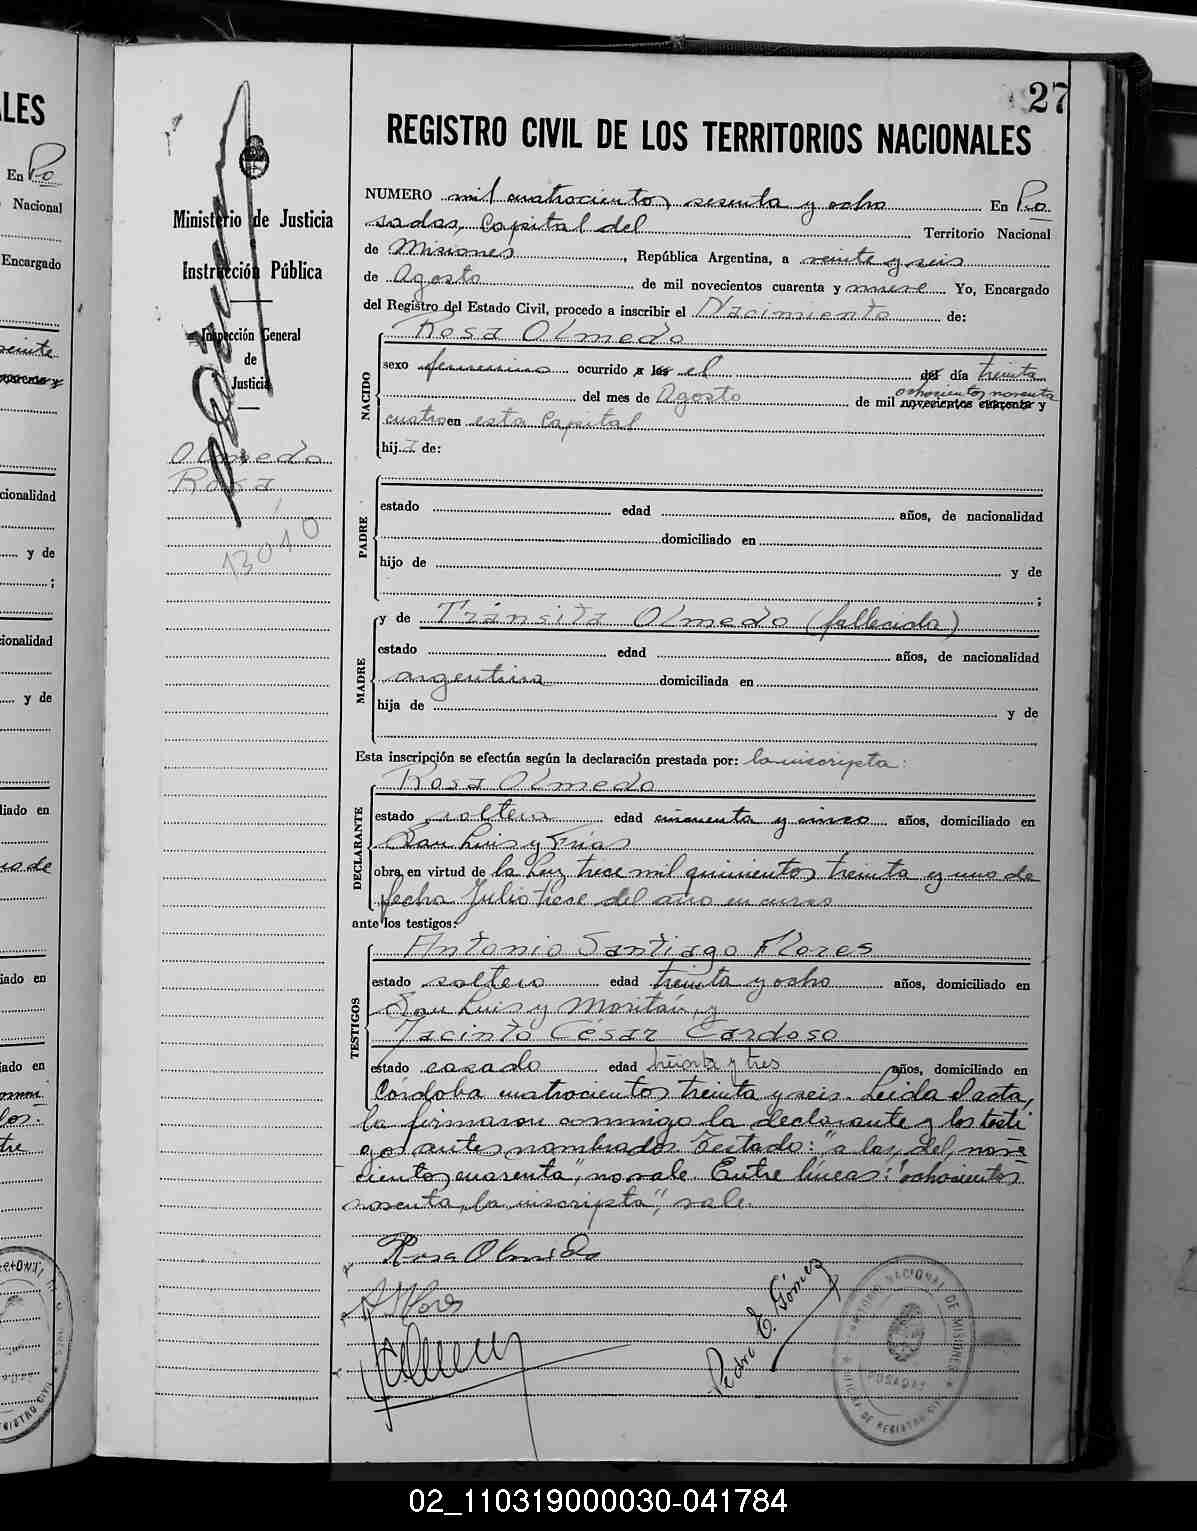 27
REGISTRO CIVIL DE LOS TERRITORIOS NACIONALES
Ministerio de Justicia
Instrucción Pública
Inspección General
de
Justicia
Olmedo
Rosa
13010
NUMERO mil cuatrocientos sesenta y ocho En Po
sadas, Capital del Territorio Nacional
de Misiones, República Argentina, a veinte y seis
de Agosto de mil novecientos cuarenta y nueve Yo, Encargado
del Registro del Estado Civil, procedo a inscribir el Nacimiento de:
NACIDO
Rosa Olmedo
sexo femenino ocurrido a las el del día treinta
ochocientos noventa
del mes de Agosto de mil novecientos cuarenta y
cuatro en esta Capital
hija de:
PADRE
estado edad años, de nacionalidad
domiciliado en
hijo de y de
;
MADRE
y de Tránsita Olmedo (fallecida)
estado edad años, de nacionalidad
argentina domiciliada en
hija de y de
Esta inscripción se efectúa según la declaración prestada por: la inscripta:
DECLARANTE
Rosa Olmedo
estado soltera edad cincuenta y cinco años, domiciliado en
San Luis y Frías
obra en virtud de la Ley trece mil quinientos treinta y uno de
fecha Julio trece del año en curso
ante los testigos:
TESTIGOS
Antonio Santiago Flores
estado soltero edad treinta y ocho años, domiciliado en
San Luis y Moritán, y
Jacinto César Cardoso
estado casado edad treinta y tres años, domiciliado en
Córdoba cuatrocientos treinta y seis. Leida el acta,
la firmaron conmigo la declarante y los testi
gos antes nombrados. Testado: "a las, del, nove
cientos cuarenta", no vale. Entre líneas: "ochocientos
noventa, la inscripta", vale.
Rosa Olmedo
A S Flores
Pedro E. Gómez
NACIONAL DE MISIONES
POSADAS
OFICINA DE REGISTRO CIVIL
ALES
En Po
Nacional
Encargado
veinte
cionalidad
y de
;
cionalidad
y de
iliado en
iado en
iado en
02_110319000030-041784